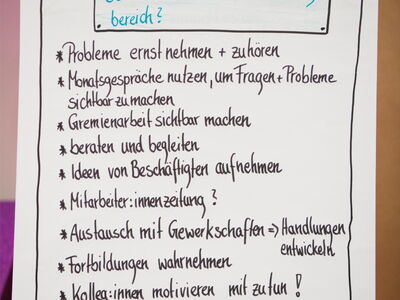 bereich?
* Probleme ernst nehmen + zuhören
* Monatsgespräche nutzen, um Fragen + Probleme
sichtbar zu machen
* Gremienarbeit sichtbar machen
* beraten und begleiten
* Ideen von Beschäftigten aufnehmen
* Mitarbeiter:innenzeitung?
* Austausch mit Gewerkschaften => Handlungen
entwickeln
* Fortbildungen wahrnehmen
* Kolleg:innen motivieren mit zu tun!